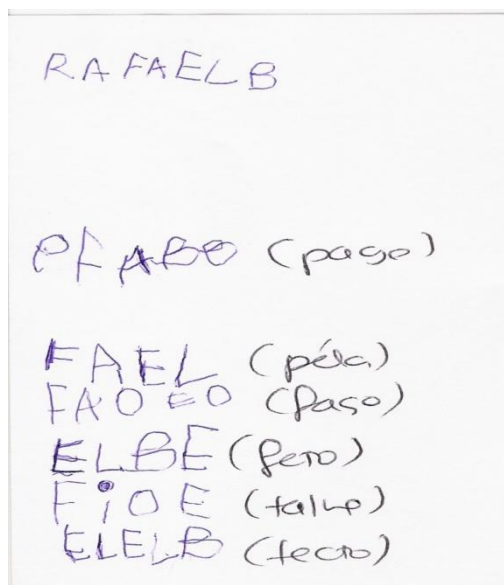 RAFAELB
PFABO (pago)
FAEL (péla)
FAOEO (fago)
ELBE (fero)
FiOE
ELELB (tecto)